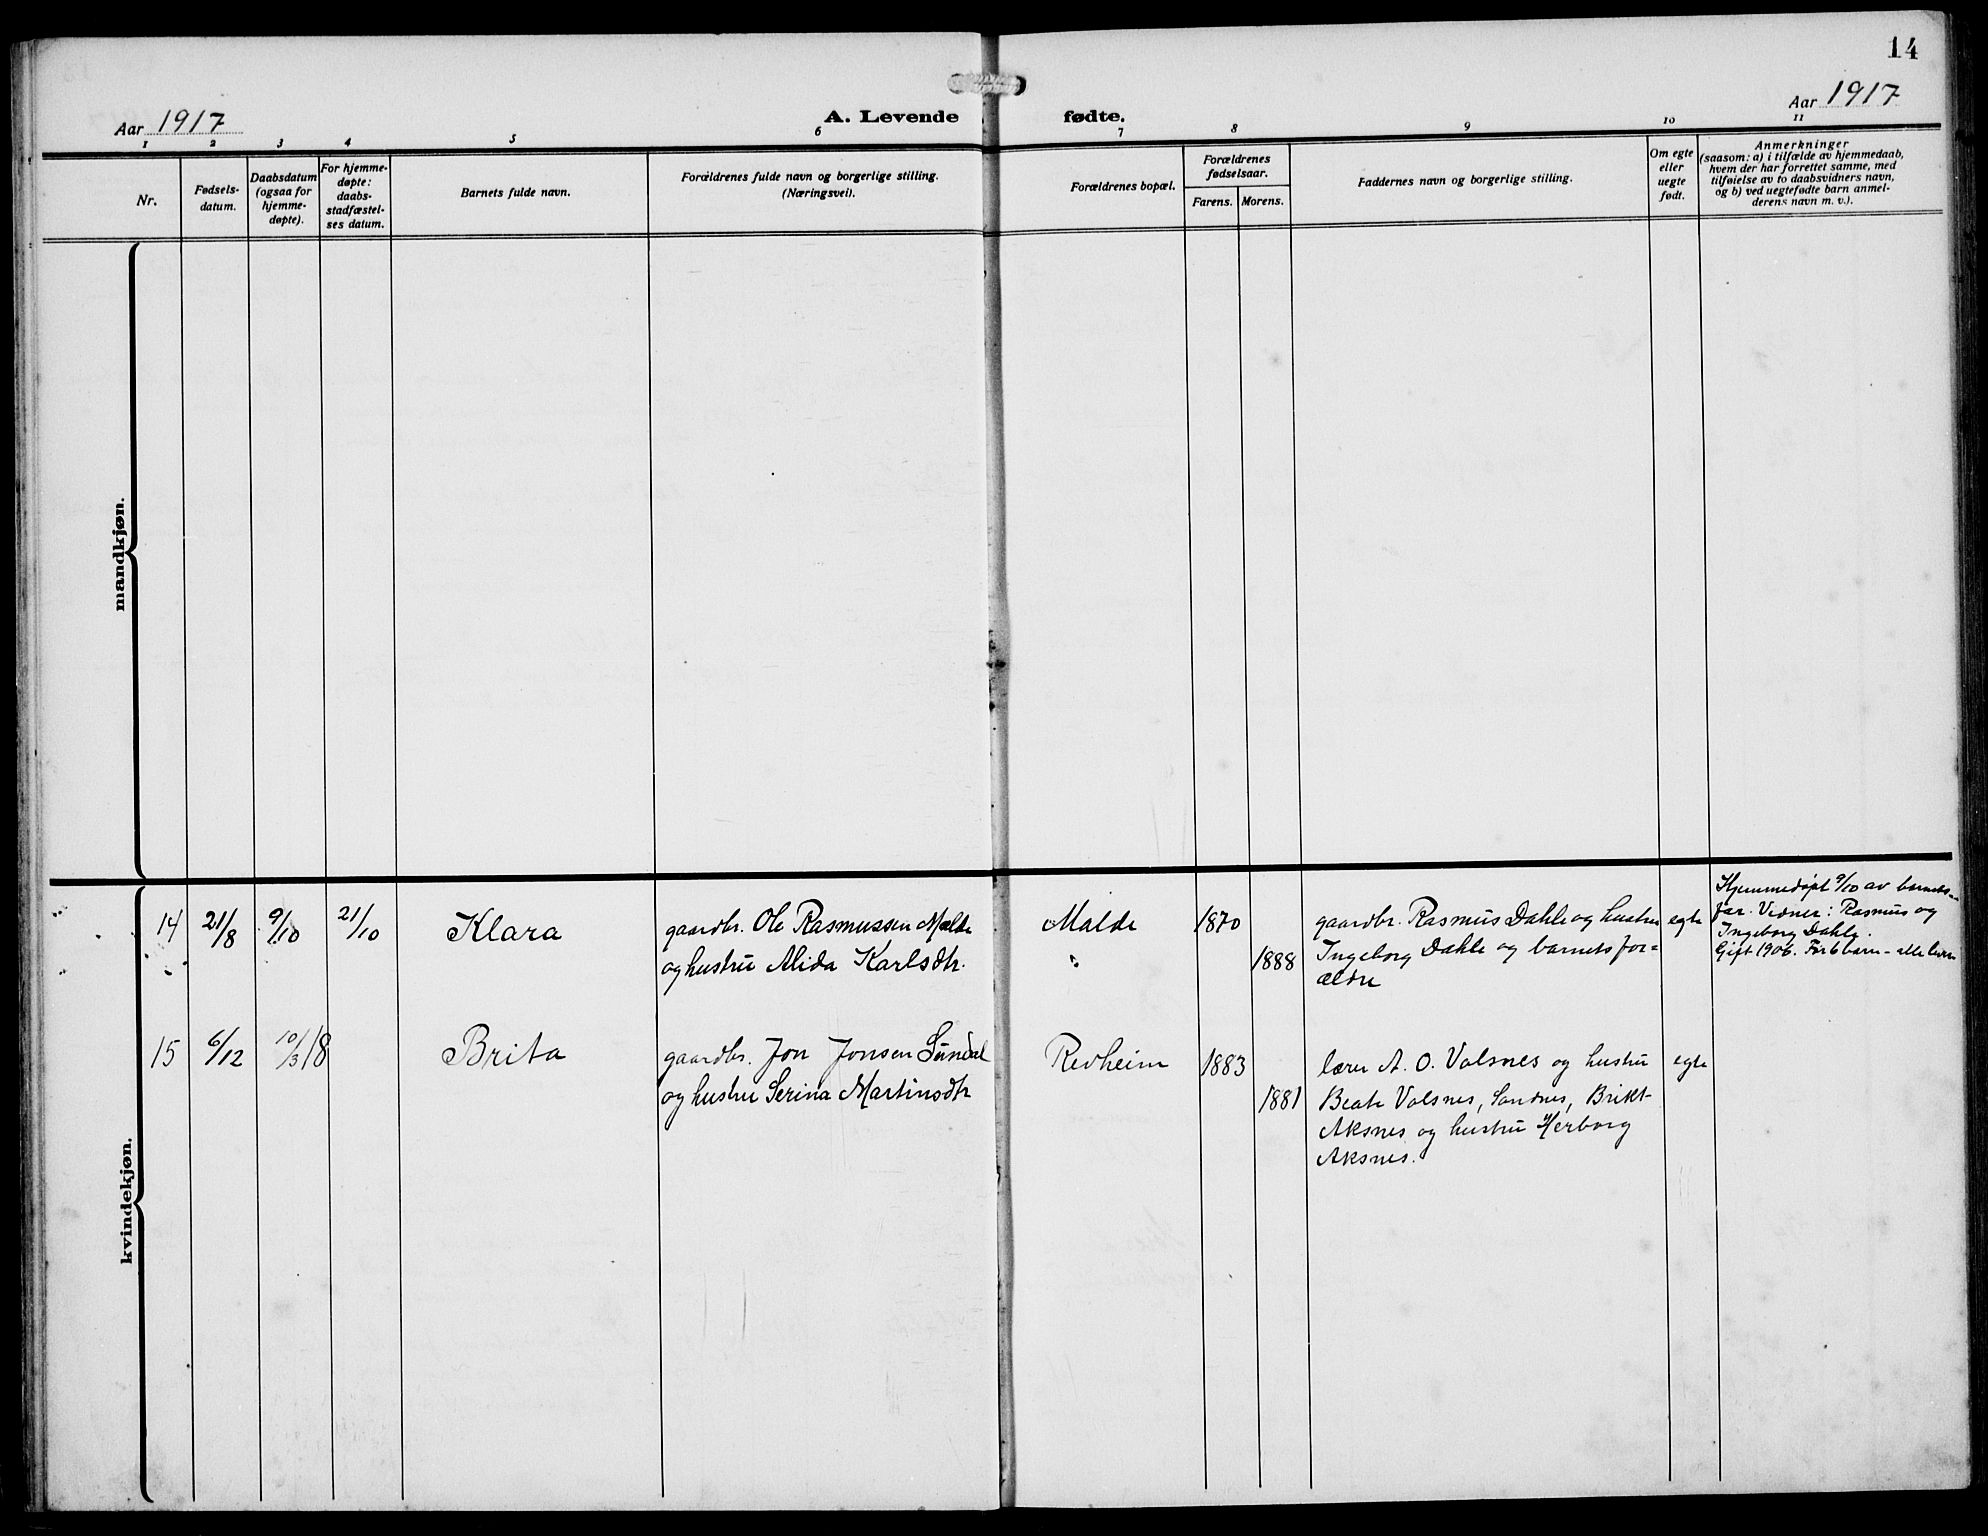 14
Aar 1917
A. Levende fødte.
Aar 1917
1 2 3 4 5 6 7 8 9 10 11
Nr.
Fødsels-
datum.
Daabsdatum
(ogsaa for
hjemme-
døpte).
For hjemme-
døpte:
daabs-
stadfæstel-
ses datum.
Barnets fulde navn.
Forældrenes fulde navn og borgerlige stilling.
(Næringsvei).
Forældrenes bopæl.
Forældrenes
fødselsaar.
Farens. Morens.
Faddernes navn og borgerlige stilling.
Om egte
eller
uegte
født.
Anmerkninger
(saasom: a) i tilfælde av hjemmedaab,
hvem der har forrettet samme, med
tilføielse av to daabsvidners navn,
og b) ved uegtefødte barn anmel-
derens navn m. v.).
mandkjøn.
kvindekjøn.
14 21/8 9/10 21/10 Klara
gaardbr. Ole Rasmussen Malde
og hustru Alida Karlsdtr.
Malde
"
1870
1888
gaardbr. Rasmus Dahle og hustru
Ingeborg Dahle og barnets for-
ældre
egte
Hjemmedøpt 9/10 av barnets
far. Vidner: Rasmus og
Ingeborg Dahle.
Gift 1906. Før 6 barn - alle lever
15 6/12 10/3 18 Brita
gaardbr. Jon Jonsen Sundal
og hustru Serina Martinsdtr
Revheim
1883
1881
lærer A. O. Valsnes og hustru
Beate Valsnes, Sandnes, Brikt
Aksnes og hustru Herborg
Aksnes.
egte